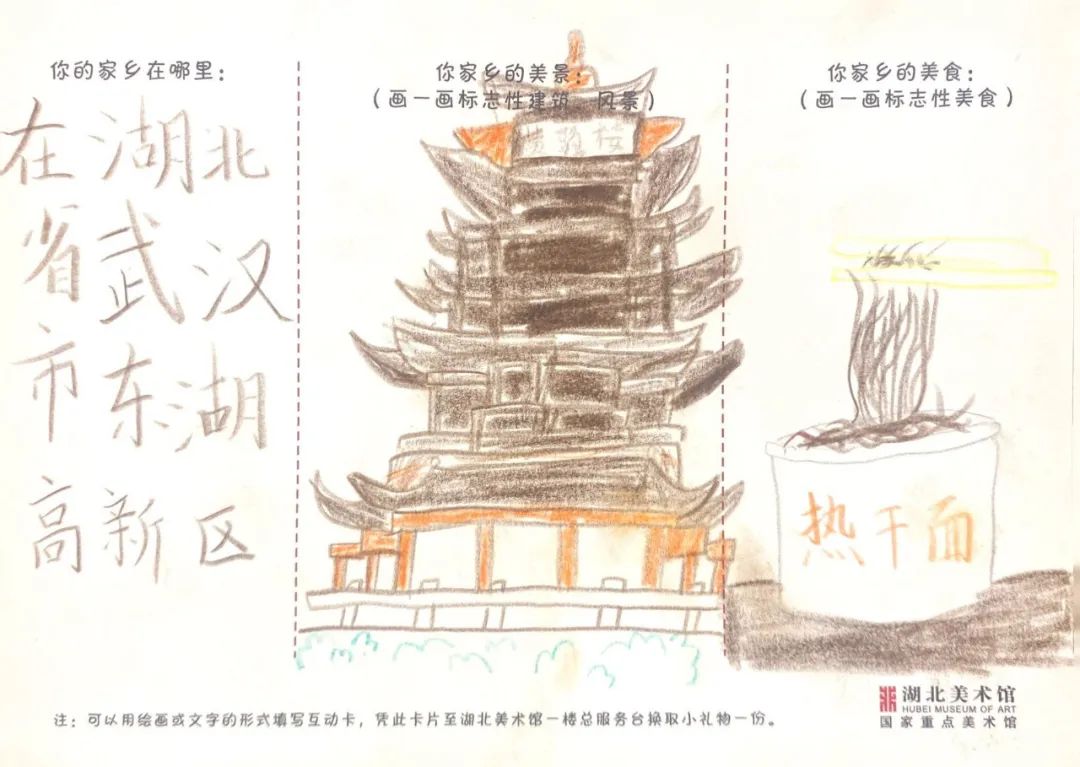 你的家乡在哪里：
在湖北
省武汉
市东湖
高新区
你家乡的美景：
（画一画标志性建筑、风景）
黄鹤楼
你家乡的美食：
（画一画标志性美食）
热干面
注：可以用绘画或文字的形式填写互动卡，凭此卡片至湖北美术馆一楼总服务台换取小礼物一份。
湖北美术馆
HUBEI MUSEUM OF ART
国家重点美术馆